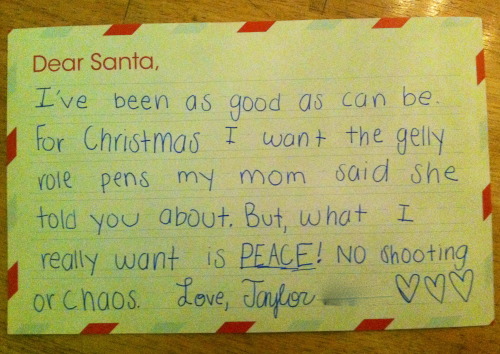 Dear Santa,
I've been as good as can be.
For Christmas I want the gelly
role pens my mom said she
told you about. But, what I
really want is PEACE! NO shooting
or chaos. Love, Taylor